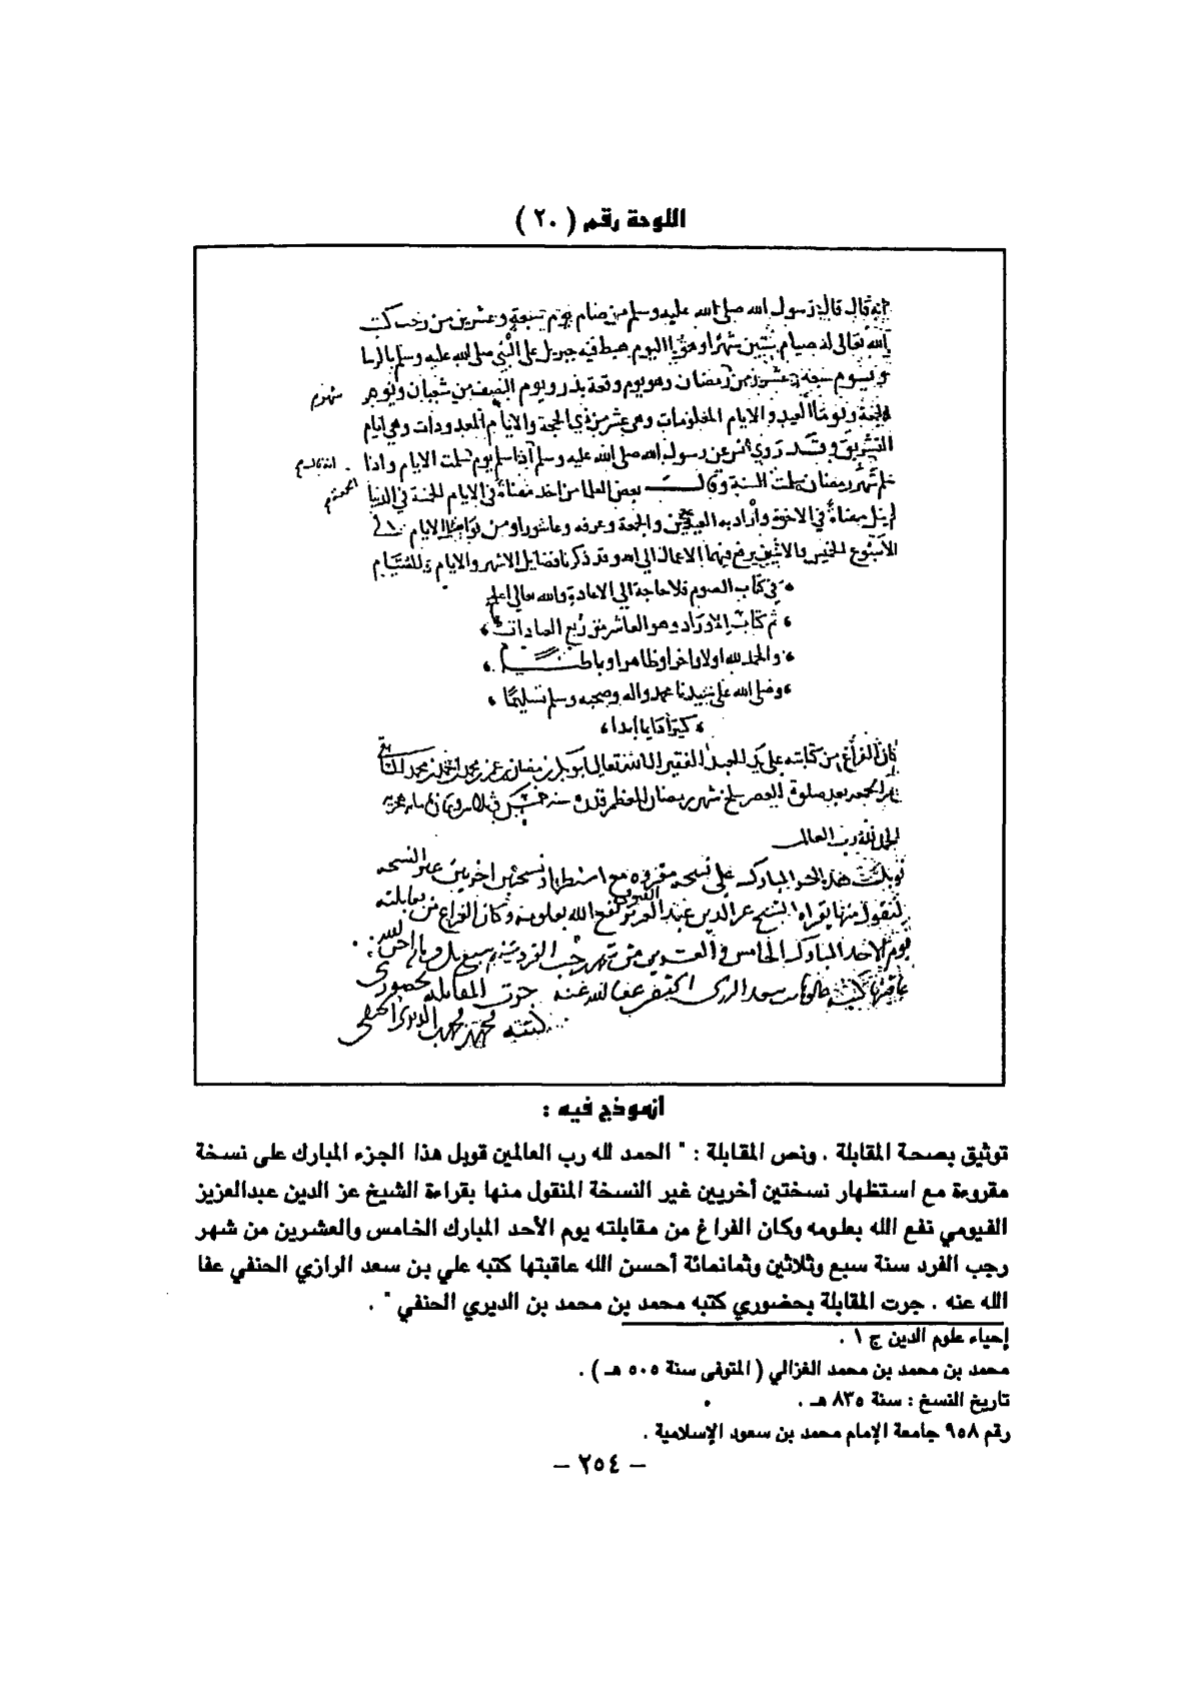 اللوحة رقم ( ٢٠ )
انه قال قال رسول الله صلى الله عليه وسلم من صام يوم سبعة وعشرين من رجب كتب
الله تعالى له صيام ستين شهرا وهو اليوم هبط فيه جبريل على النبي صلى الله عليه وسلم بالرسا
ويوم سبعة عشر من رمضان وهو يوم وقعة بدر ويوم النصف من شعبان ويوم
الجمعة ويوما العيد والايام المعلومات وهي عشر من ذي الحجة والايام المعدودات وهي ايام
التشريق وقد روي انس عن رسول الله صلى الله عليه وسلم اذا سلم يوم سلمت الايام واذا
سلم شهر رمضان سلمت السنة وقال بعض العلما من اخذ مهناة في الايام الخمسة في الدنيا
لم ينل مهناة في الاخرة وأراد به العيدين والجمعة وعرفه وعاشورا ومن فواضل الايام في
الاسبوع الخميس والاثنين يرفع فيهما الاعمال الى الله وقد ذكرنا فضايل الاشهر والايام للصيام
في كتاب الصوم فلا حاجة الي الاعادة والله تعالى اعلم
ثم كتاب الاوراد وهو العاشر من ربع العبادات
والحمد لله اولا واخرا وظاهرا وباطنا
وصلى الله على سيدنا محمد واله وصحبه وسلم تسليما
كثيرا دايما ابدا
كان الفراغ من كتابته على يد العبد الفقير الى الله تعالى ابو بكر بن رمضان بن
بعد صلوة العصر سلخ شهر رمضان المعظم قدره سنة خمس وثلاثين وثمان مايه
الحمد لله رب العالمين
قوبلت هذا الجزء المبارك على نسخه مقروه مع استظهار نسختين اخريين غير النسخه
المنقول منها بقراة الشيخ عز الدين عبد العزيز الفيومي نفع الله بعلومه وكان الفراغ من مقابلته
يوم الاحد المبارك الخامس والعشرين من شهر رجب الفرد سنة سبع وثلاثين احسن الله
عاقبتها كتبه علي بن سعد الرازي الحنفي عفا الله عنه جرت المقابلة بحضوري
كتبه محمد بن محمد بن الديري الحنفي
أنموذج فيه :
توثيق بصحة المقابلة . ونص المقابلة : " الحمد لله رب العالمين قوبل هذا الجزء المبارك على نسخة
مقروءة مع استظهار نسختين أخريين غير النسخة المنقول منها بقراءة الشيخ عز الدين عبدالعزيز
الفيومي نفع الله بعلومه وكان الفراغ من مقابلته يوم الأحد المبارك الخامس والعشرين من شهر
رجب الفرد سنة سبع وثلاثين وثمانمائة أحسن الله عاقبتها كتبه علي بن سعد الرازي الحنفي عفا
الله عنه . جرت المقابلة بحضوري كتبه محمد بن محمد بن الديري الحنفي " .
إحياء علوم الدين ج ١ .
محمد بن محمد بن محمد الغزالي ( المتوفى سنة ٥٠٥ هـ ) .
تاريخ النسخ : سنة ٨٣٥ هـ .
رقم ٩٥٨ جامعة الإمام محمد بن سعود الإسلامية .
– ٢٥٤ –